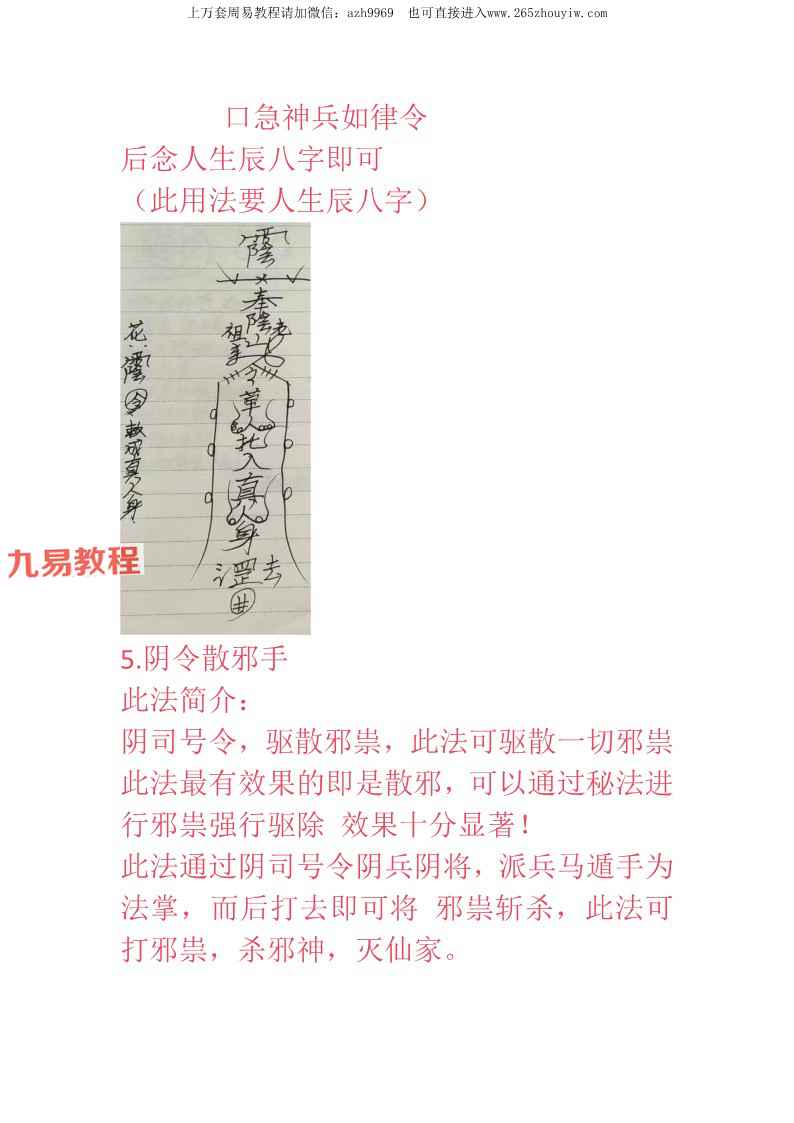 上万套周易教程请加微信：azh9969 也可直接进入www.265zhouyiw.com
口急神兵如律令
后念人生辰八字即可
（此用法要人生辰八字）
奉陰山
祖 老
令
草人托入真人身
去
井
花
令
敕成真人身
九易教程
5.阴令散邪手
此法简介：
阴司号令，驱散邪祟，此法可驱散一切邪祟
此法最有效果的即是散邪，可以通过秘法进
行邪祟强行驱除 效果十分显著！
此法通过阴司号令阴兵阴将，派兵马遁手为
法掌，而后打去即可将 邪祟斩杀，此法可
打邪祟，杀邪神，灭仙家。